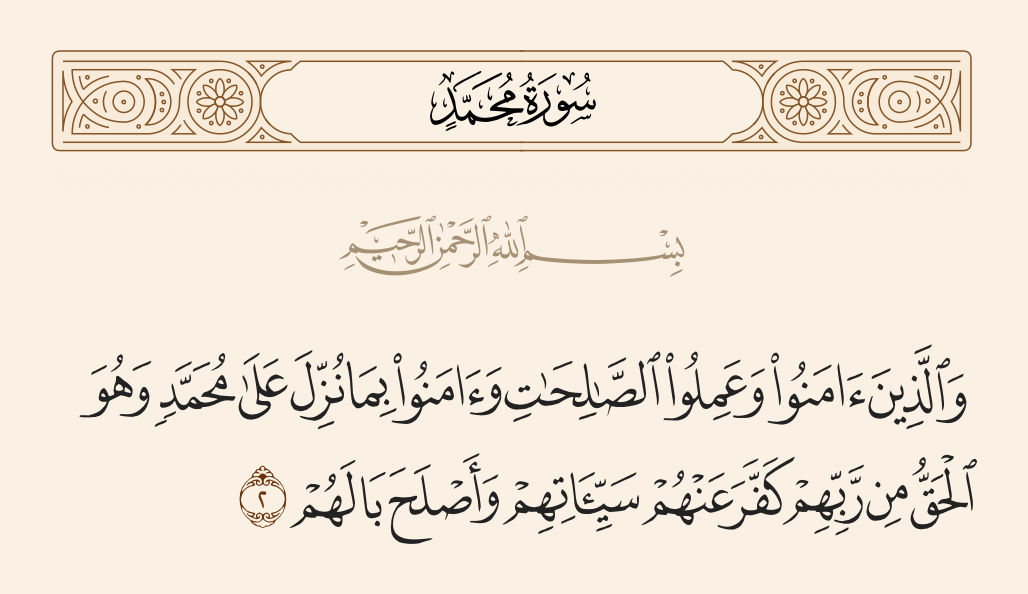 سُورَةُ مُحَمَّدٍ
بِسْمِ ٱللَّهِ ٱلرَّحْمَٰنِ ٱلرَّحِيمِ
وَٱلَّذِينَ ءَامَنُوا۟ وَعَمِلُوا۟ ٱلصَّٰلِحَٰتِ وَءَامَنُوا۟ بِمَا نُزِّلَ عَلَىٰ مُحَمَّدٍ وَهُوَ
ٱلْحَقُّ مِن رَّبِّهِمْ كَفَّرَ عَنْهُمْ سَيِّـَٔاتِهِمْ وَأَصْلَحَ بَالَهُمْ ٢